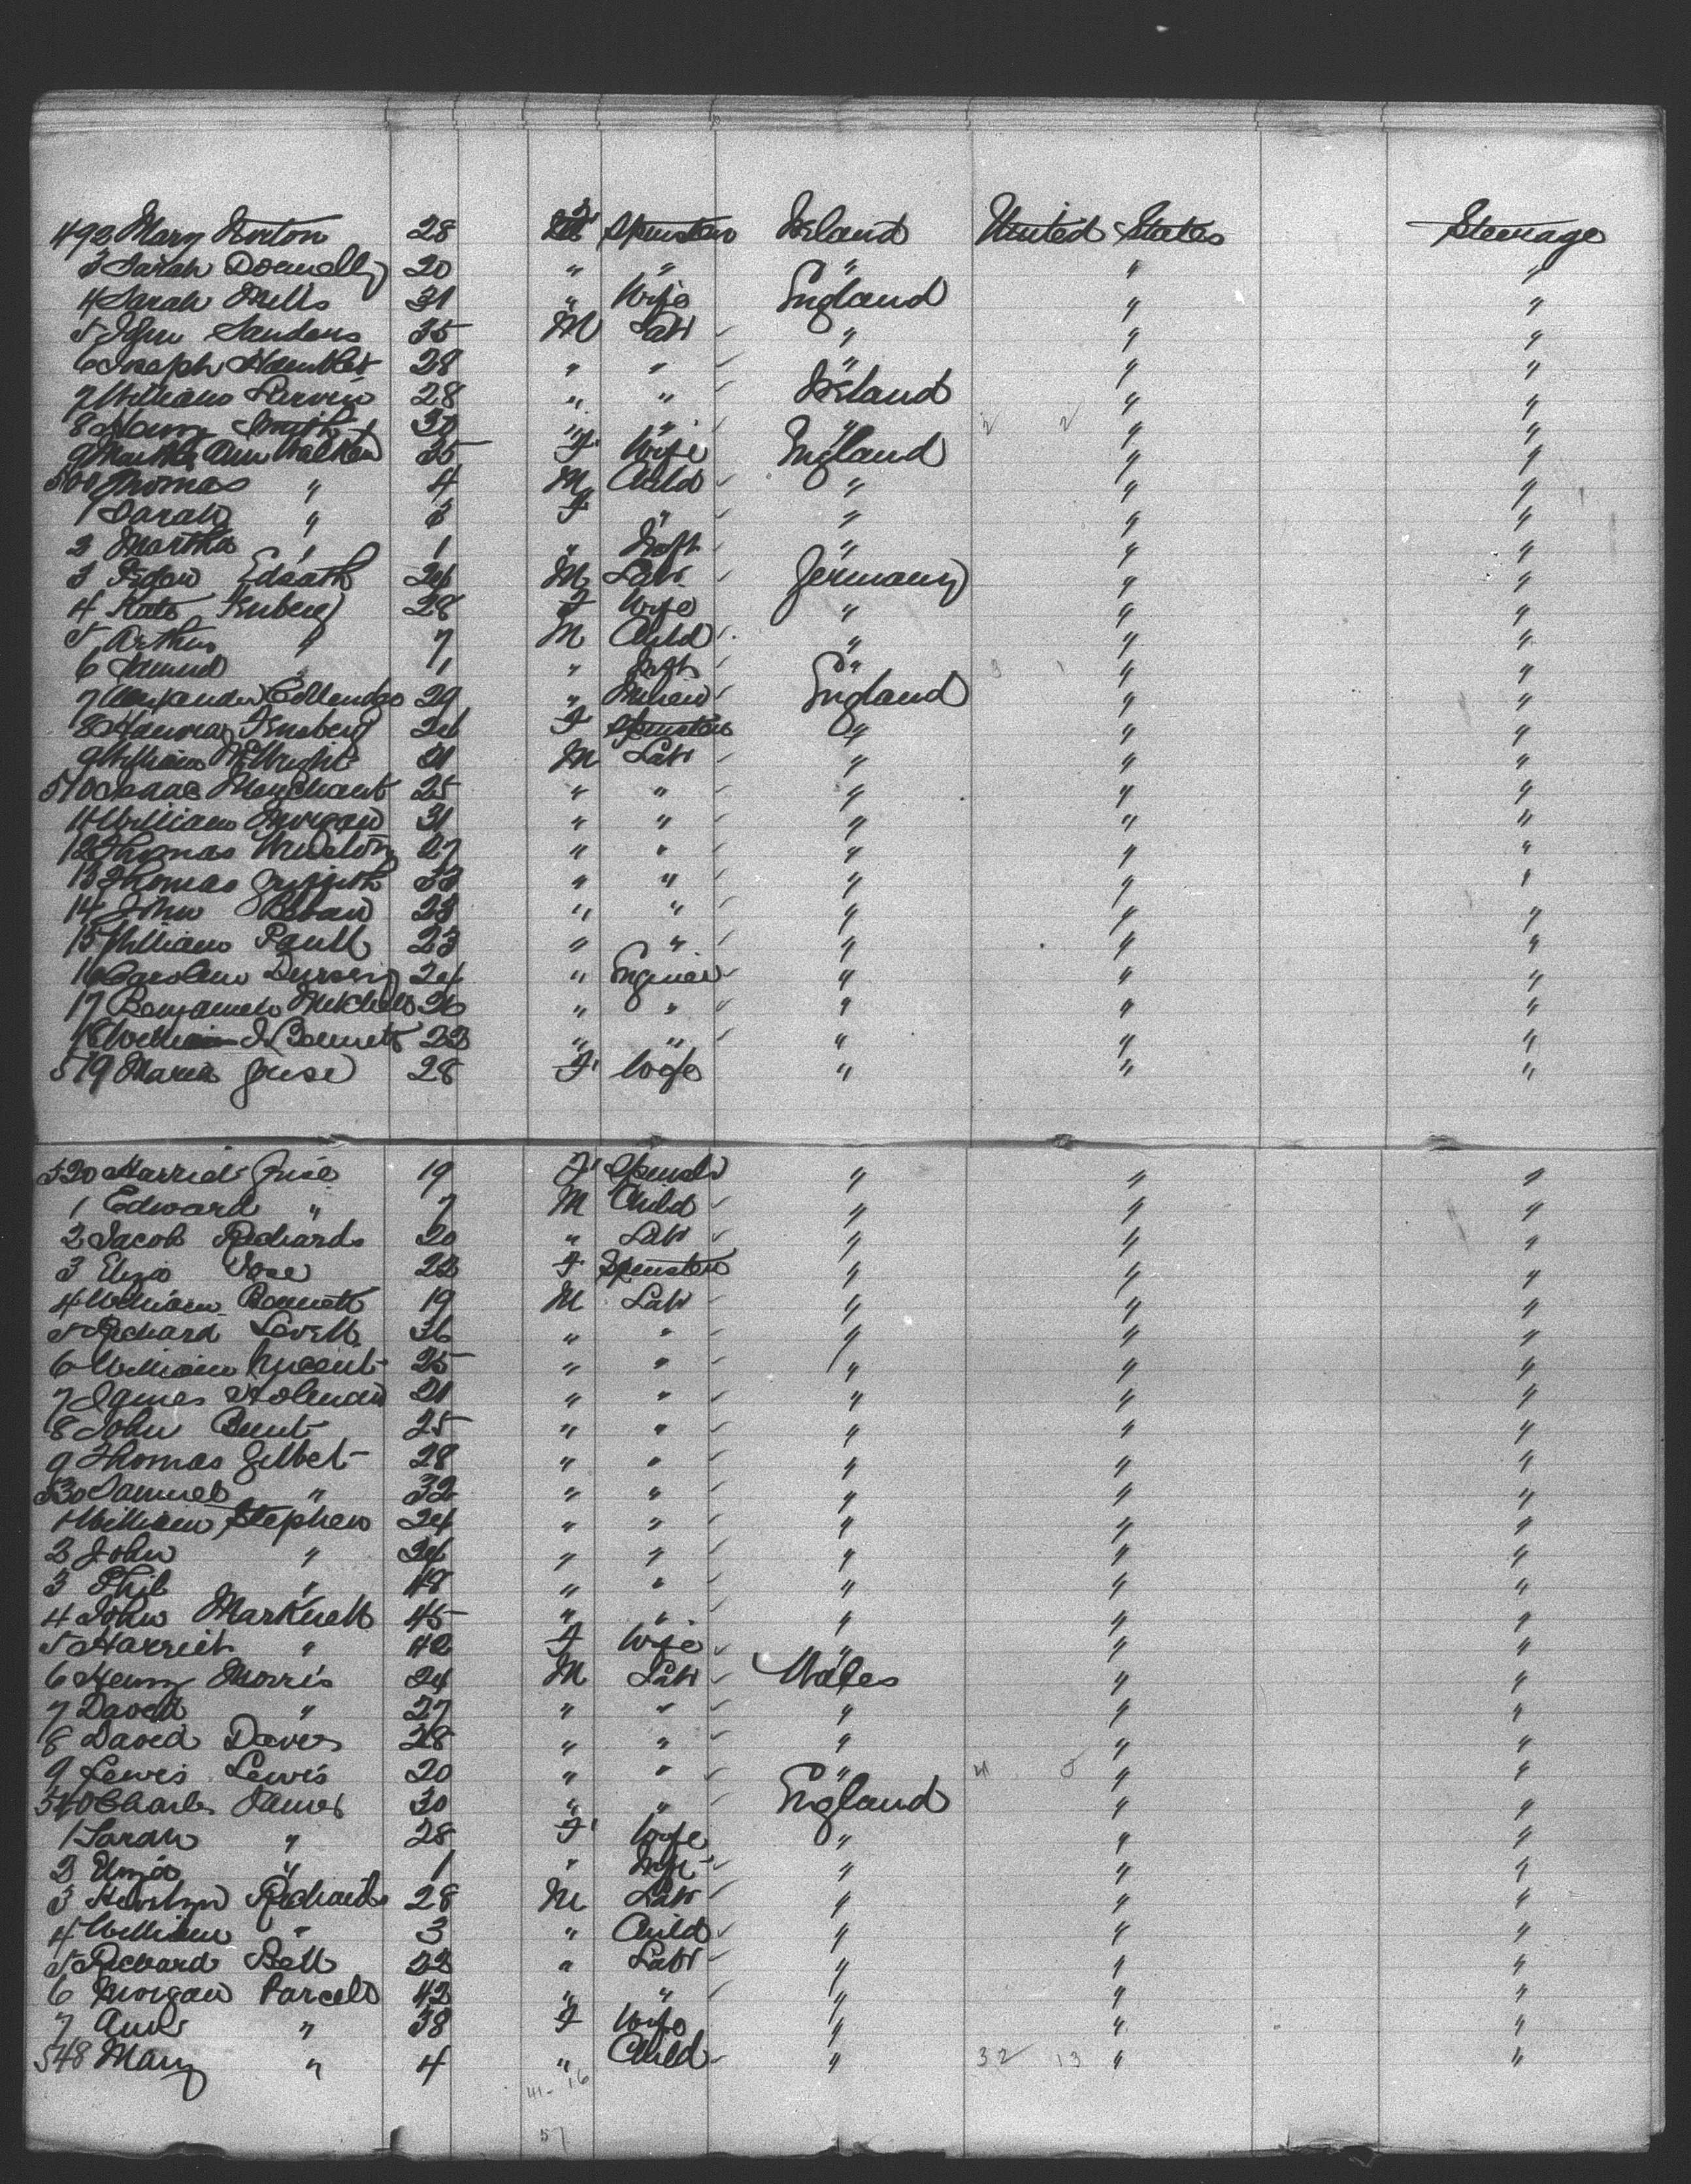 492 Mary Norton 28 F Spinster Ireland United States Steerage
3 Sarah Donnelly 20 " " " " "
4 Sarah Mills 31 " Wife England " "
5 John Sanders 35 M Labr " " "
6 Joseph 28 " " " " "
7 William 28 " " Ireland " "
8 Harry Smith 32 " " " " "
9 Martha Ann Walker 35 F Wife England " "
500 Thomas " 4 M Child " " "
1 Sarah " 3 F " " " "
2 Martha " 1 " Inft " " "
3 M Labr Germany " "
4 Kate 28 F Wife " " "
5 Arthur " 7 M Child " " "
6 Samuel " 1 " Inft " " "
7 Alexander 29 " England " "
8 F Spinster " " "
9 William Wright 21 M Labr " " "
510 Isaac Marchant 25 " " " " "
11 William Morgan 31 " " " " "
12 Thomas 27 " " " " "
13 Thomas Griffith 33 " " " " "
14 John Bevan 23 " " " " "
15 William Paull 23 " " " " "
16 24 " Engineer " " "
17 Benjamin Mitchell 26 " " " " "
18 William J Bennett 22 " " " " "
519 Maria Guse 28 F Wife " " "
520 Harriet Guse 19 F Spinstr " " "
1 Edward " 7 M Child " " "
2 Jacob Richards 20 " Labr " " "
3 Eliza Jose 22 F Spinster " " "
4 William Bennett 19 M Labr " " "
5 Richard Lovell 36 " " " " "
6 William Vincent 25 " " " " "
7 James Holman 21 " " " " "
8 John Bunt 25 " " " " "
9 Thomas Gilbet 28 " " " " "
530 Samuel " 32 " " " " "
1 William Stephens 24 " " " " "
2 John " 24 " " " " "
3 Phil " 48 " " " " "
4 John Marknell 45 " " " " "
5 Harriet " 42 F Wife " " "
6 Henry Morris 24 M Labr Wales " "
7 David " 27 " " " " "
8 David Davies 28 " " " " "
9 Lewis Lewis 20 " " " " "
540 Charles James 30 " " England " "
1 Sarah " 28 F Wife " " "
2 " 1 " Inft " " "
3 Richards 28 M Labr " " "
4 William " 3 " Child " " "
5 Richard Bell 22 " Labr " " "
6 Morgan Parcell 42 " " " " "
7 Ann " 38 F Wife " " "
548 Mary " 4 " Child " 32 13 " "
41 - 16
57